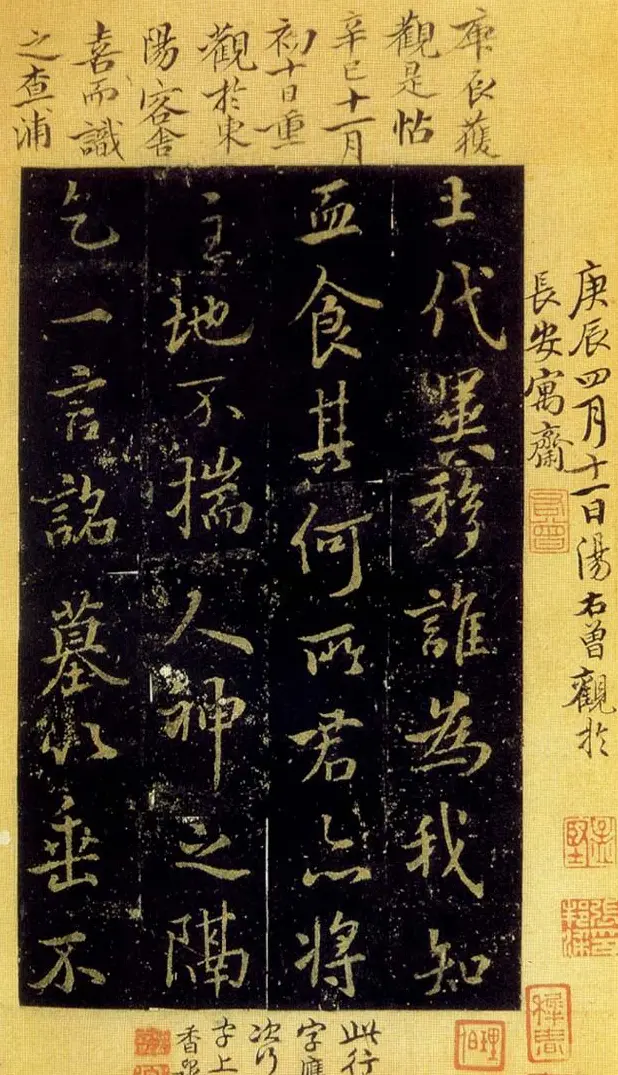 庚辰四月十一日湯右曾觀於
長安寓齋
右曾
庚辰獲
觀是帖
辛巳十一月
初十日重
觀於東
陽客舍
喜而識
之查浦
土代異移誰為我知
血食其何所君亦將
主地不揣人神之隔
乞一言詺墓以垂不
此行
字應
次行
字上
香泉